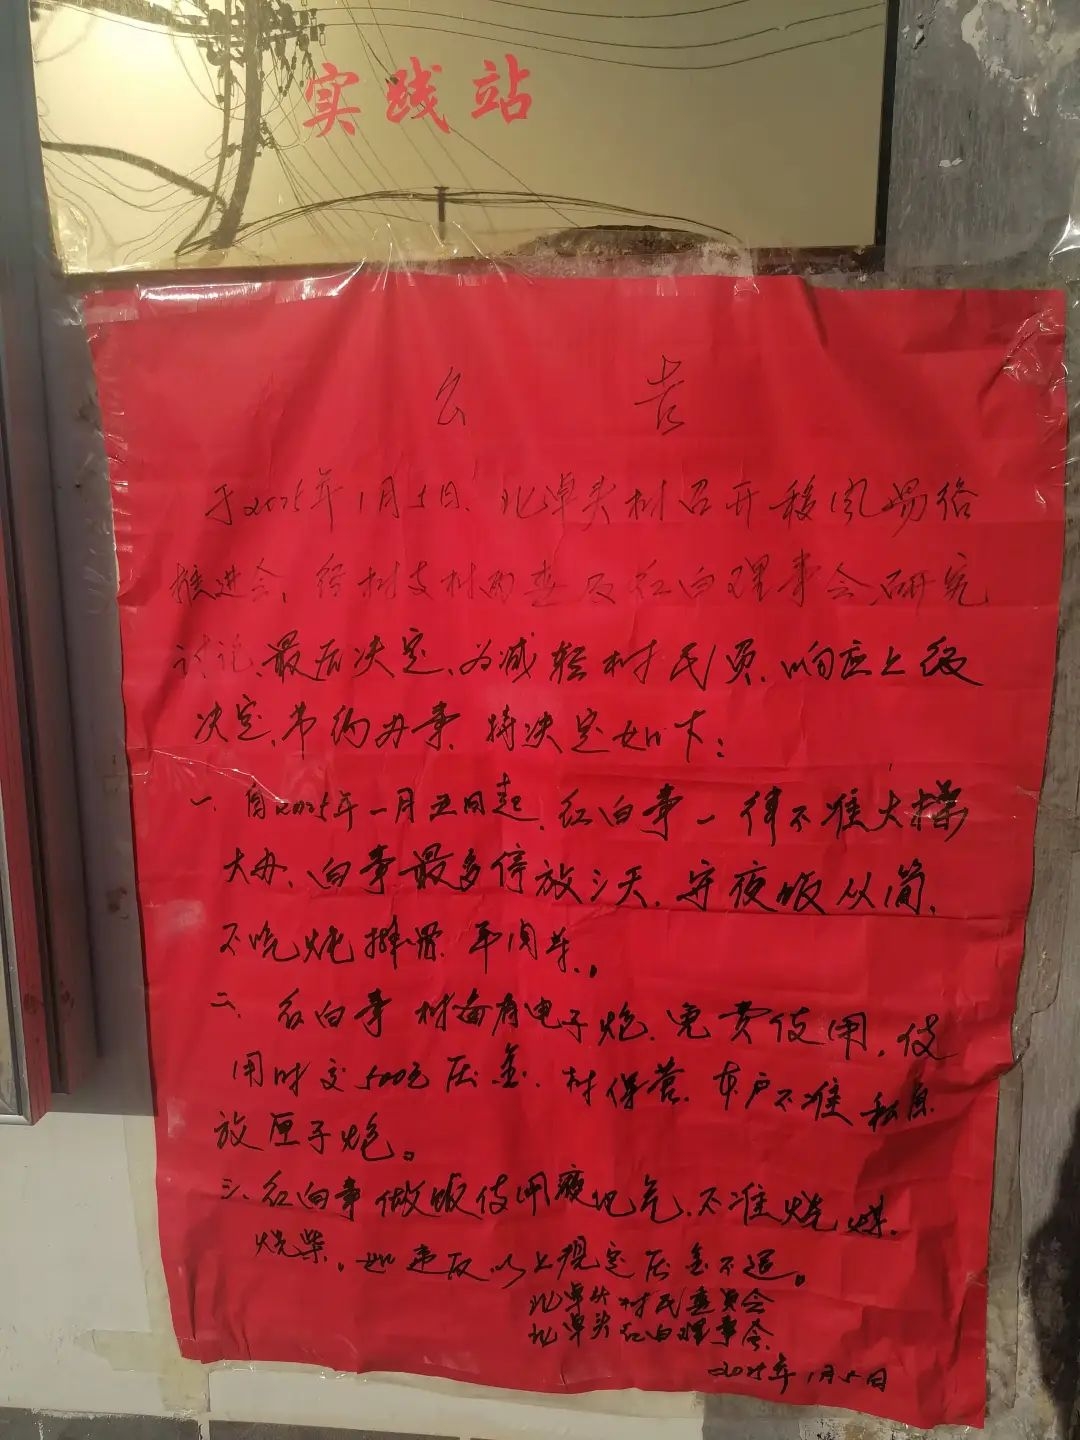 实践站
公告
于2025年1月5日、北卓头村召开移风易俗
推进会，经村支村两委及红白理事会、研究
讨论、最后决定、为减轻村民负、响应上级
决定、节约办事、特决定如下：
一、自2025年一月五日起、红白事一律不准大操
大办、白事最多停放三天、守夜饭从简、
不吃炖排骨、羊肉等。
二、红白事村备有电子炮、免费使用、使
用时交500元压金、村保营、本户不准私自
放匣子炮。
三、红白事做饭使用液化气、不准烧煤、
烧柴。如违反以上规定压金不退。
北卓头村民委员会
北卓头红白理事会
2025年1月5日